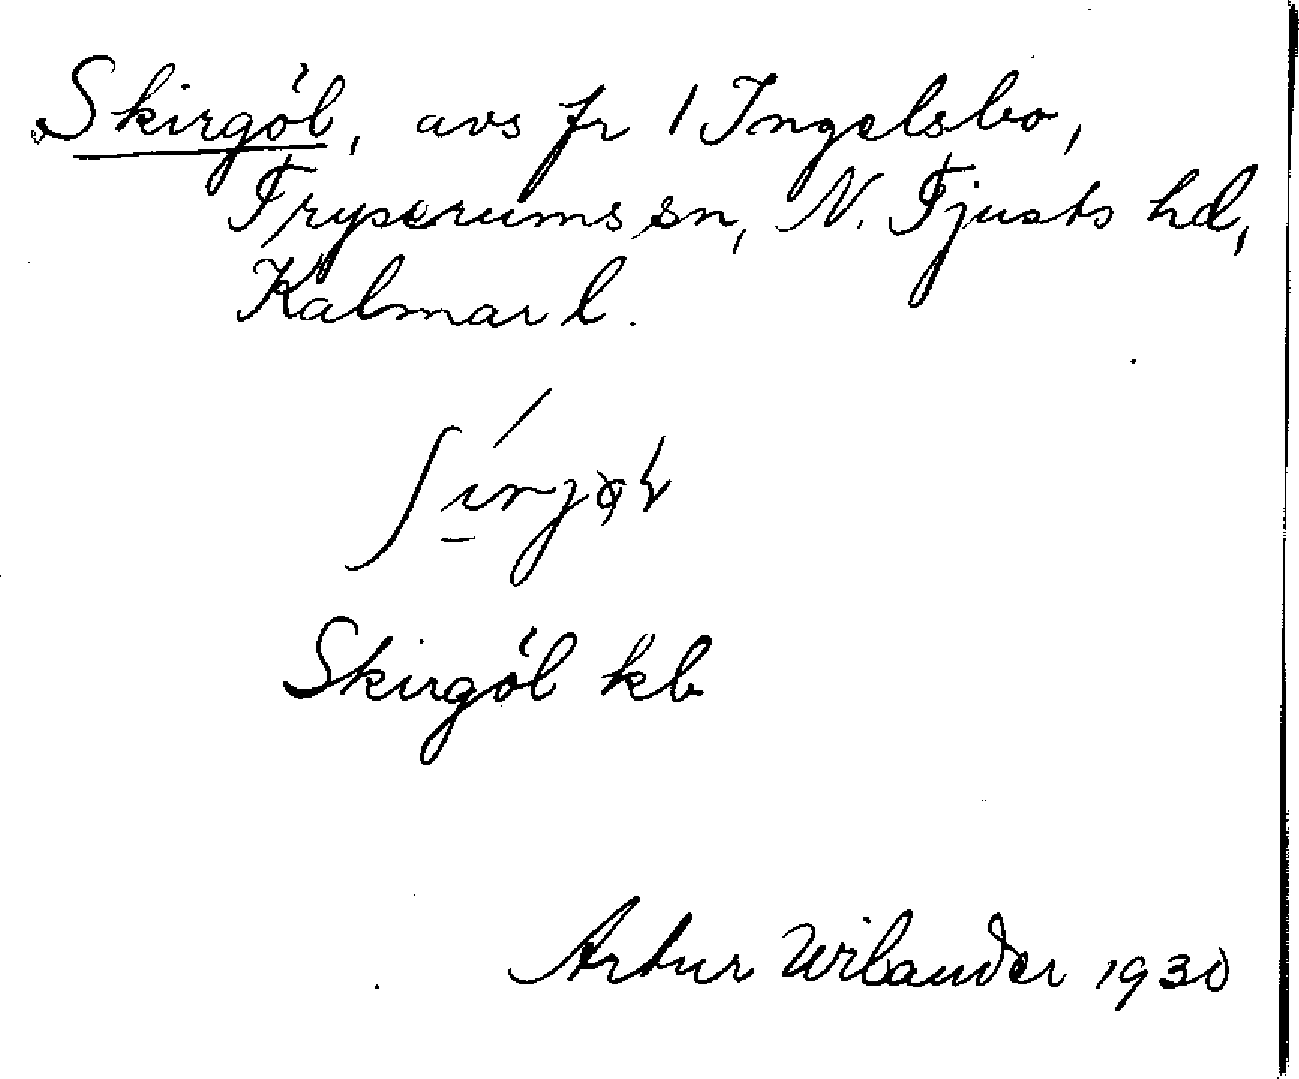 Skirgöl, avs fr 1 Ingelsbo,
Tryserums sn, N. Tjusts hd,
Kalmar l.
Skirgöl kb
Artur Wilander 1930